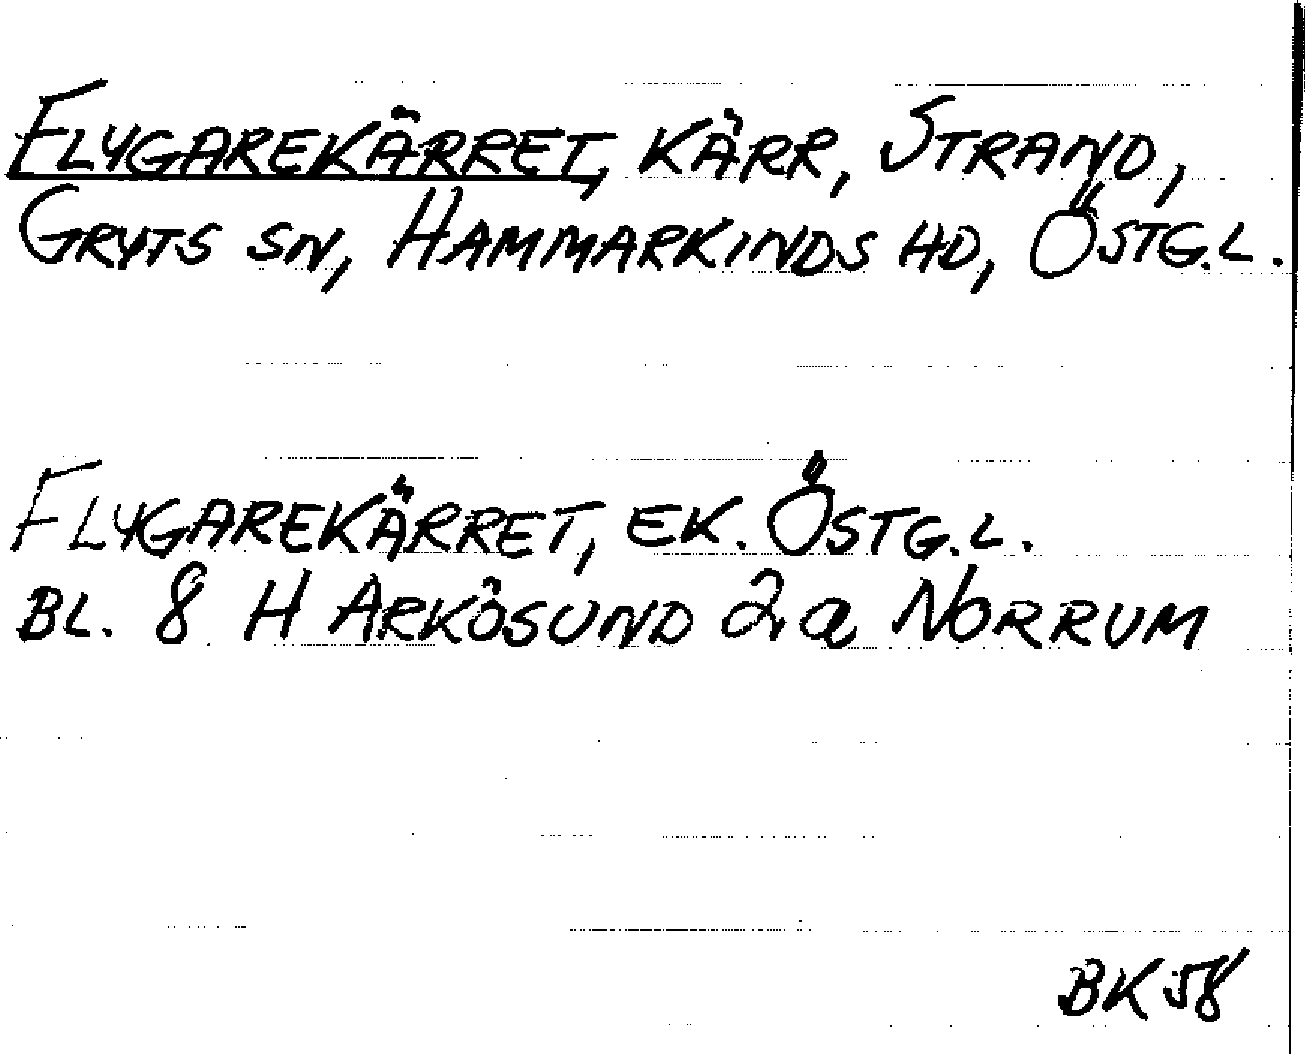 FLYGAREKÄRRET, KÄRR, STRAND,
GRYTS SN, HAMMARKINDS HD, ÖSTG.L.
FLYGAREKÄRRET, EK. ÖSTG.L.
BL. 8 H ARKÖSUND 2a NORRUM
BK 58